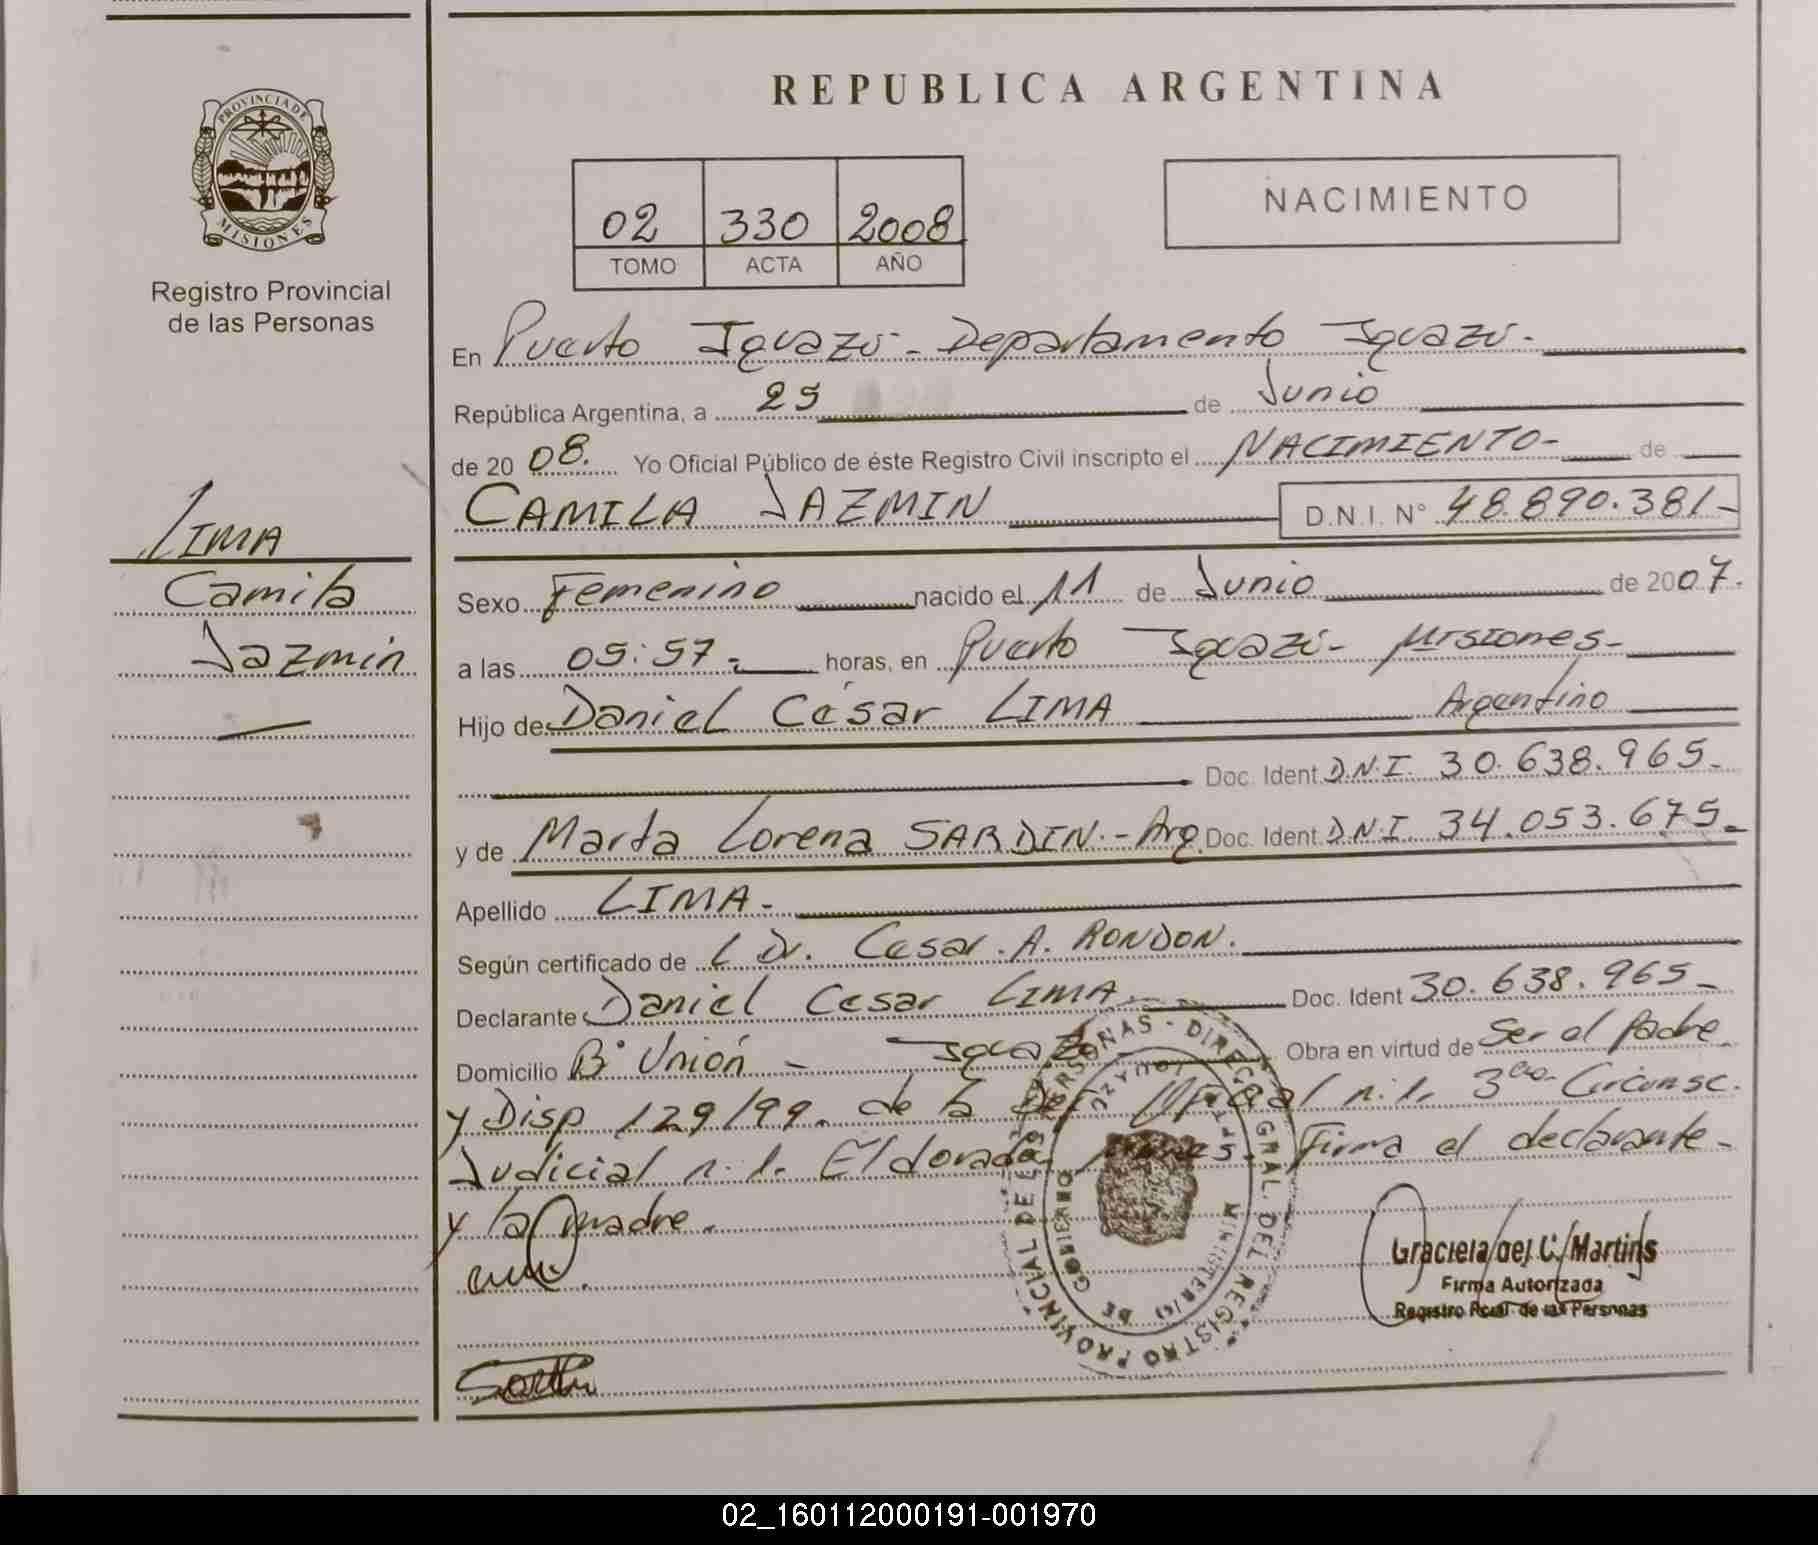 REPUBLICA ARGENTINA
PROVINCIA DE
MISIONES
Registro Provincial
de las Personas
02 330 2008
TOMO ACTA AÑO
NACIMIENTO
En Puerto Iguazú - Departamento Iguazú.
República Argentina, a 25 de Junio
de 2008. Yo Oficial Público de éste Registro Civil inscripto el NACIMIENTO- de
CAMILA JAZMIN D.N.I. N° 48.890.381-
LIMA
Camila
Jazmin
Sexo Femenino nacido el 11 de Junio de 2007.
a las 05:57- horas, en Puerto Iguazú- Misiones-
Hijo de Daniel César LIMA Argentino
Doc. Ident. D.N.I. 30.638.965-
y de Marta Lorena SARDIN.- Arg. Doc. Ident. D.N.I. 34.053.675-
Apellido LIMA-
Según certificado de L Dr. Cesar. A. RONDON.
Declarante Daniel Cesar LIMA Doc. Ident 30.638.965-
Domicilio B° Unión - Iguazú Obra en virtud de Ser el Padre
y Disp 129/99. de la Def. Oficial n.1. 3era. Circunsc.
Judicial n.1. Eldorado, Mnes. Firma el declarante-
y la madre.
PROVINCIAL DE LAS PERSONAS - DIREC. GRAL. DEL REGISTRO
MINISTERIO DE GOBIERNO
IGUAZU
Graciela del C. Martins
Firma Autorizada
Registro Pcial. de las Personas
02_160112000191-001970